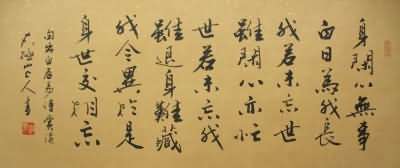 身閑心無事
白日為我長
我若未忘世
雖閑心亦忙
世若未忘我
雖退身難藏
我今異於是
身世交相忘
白居易
山人書